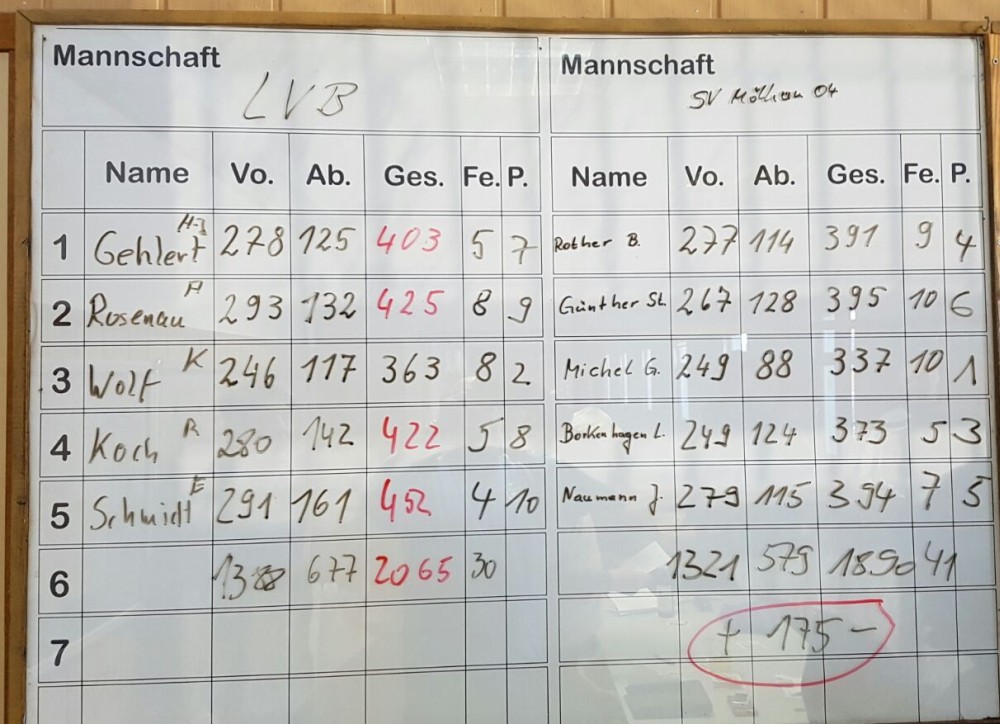 Mannschaft LVB
Mannschaft SV Mölkau 04
Name Vo. Ab. Ges. Fe. P. Name Vo. Ab. Ges. Fe. P.
1 Gehlert H-J 278 125 403 5 7 Rother B. 277 114 391 9 4
2 Rosenau 293 132 425 8 9 Günther St. 267 128 395 10 6
3 Wolf K 246 117 363 8 2 Michel G. 249 88 337 10 1
4 Koch R 280 142 422 5 8 Borkenhagen L. 249 124 373 5 3
5 Schmidt E 291 161 452 4 10 Naumann J. 279 115 394 7 5
6 677 2065 30 1321 579 1890 41
7 + 175 -